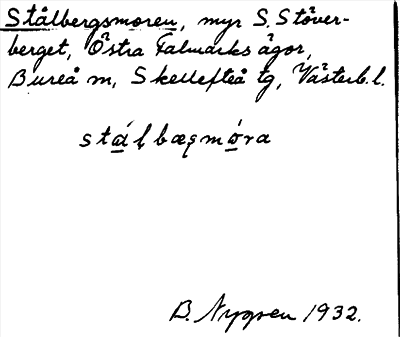 Stålbergsmoren, myr S. Stöver-
berget, Östra Falmarks ägor,
Bureå sn, Skellefteå tg, Västerb. l.
stálbægmóra
B. Nygren 1932.